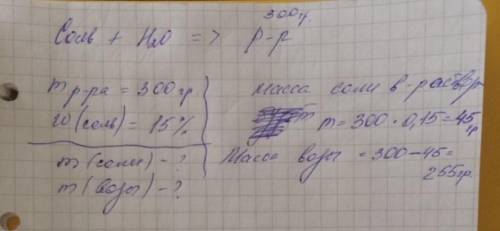 300гр.
Соль + H2O => р-р
m р-ра = 300 гр.
W(соль) = 15%
m (соли) - ?
m (воды) - ?
Масса соли в р-растворе
m = 300 · 0,15 = 45 гр
Масса воды = 300 - 45 =
255гр.